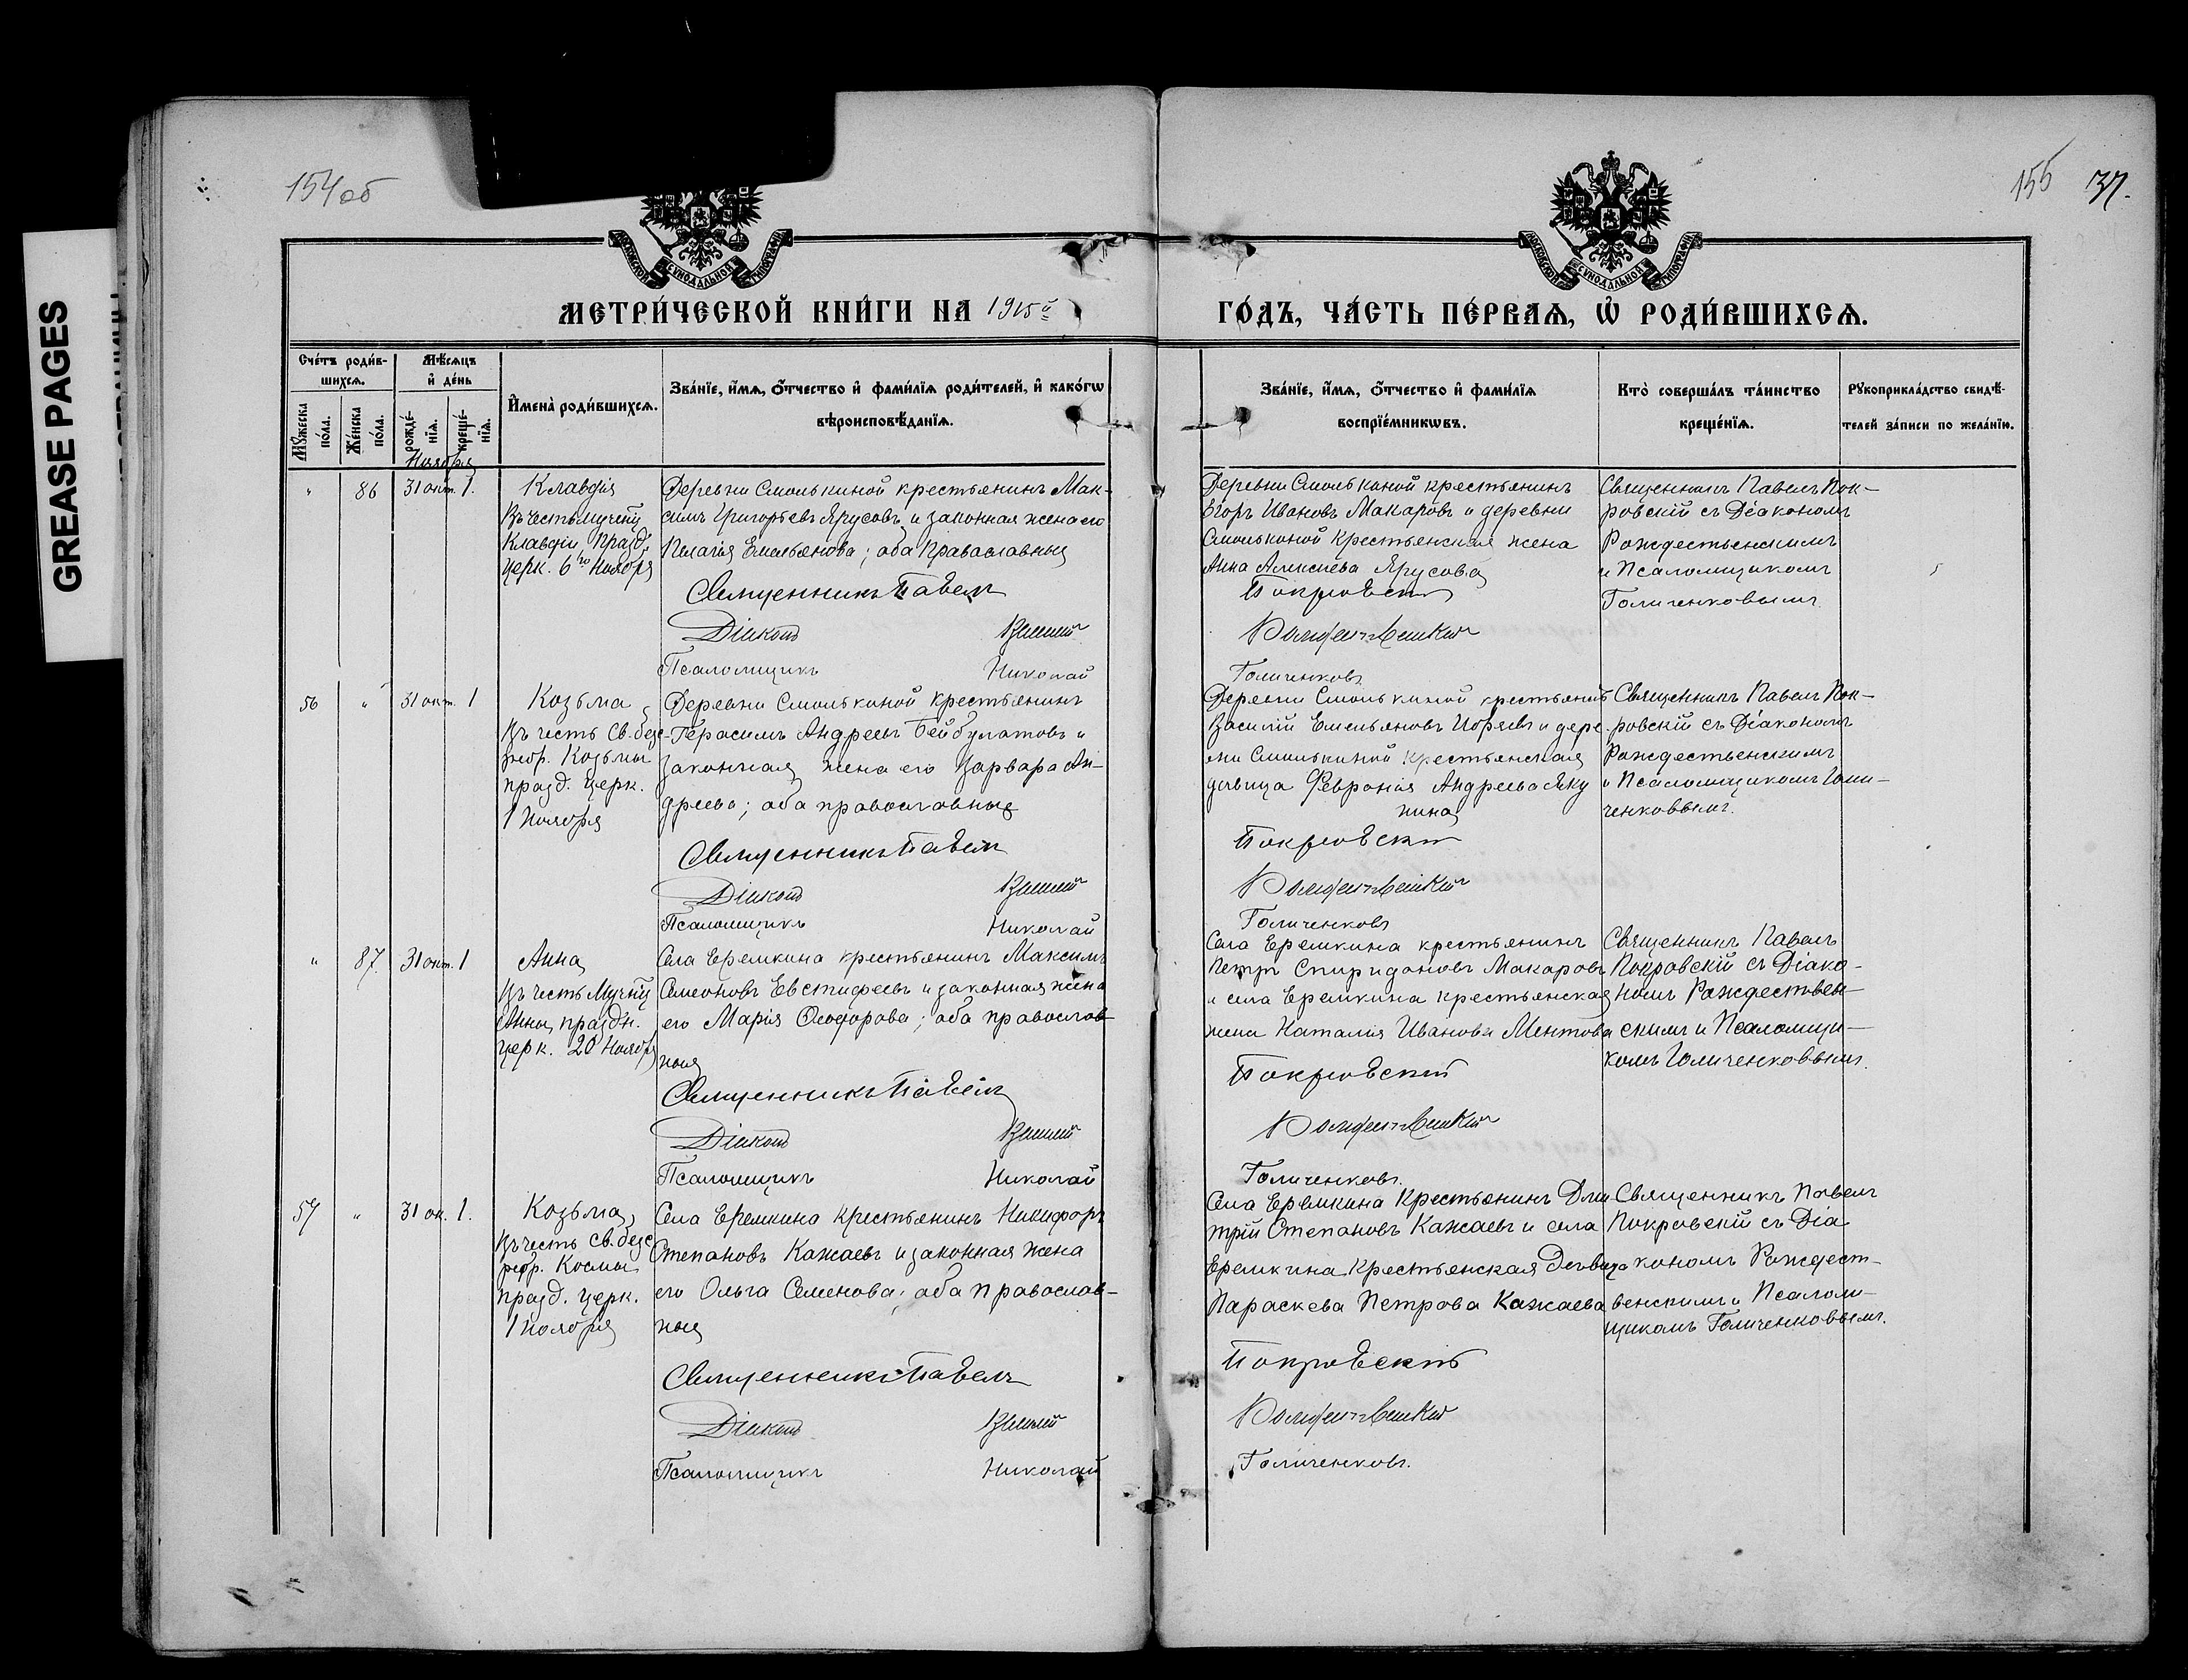 GREASE PAGES
154 об
155 37.
МОСКОВСКОЙ СѴНОДАЛЬНОЙ ТИПОГРАФІИ
МОСКОВСКОЙ СѴНОДАЛЬНОЙ ТИПОГРАФІИ
МЕТРИ́ЧЕСКОЙ КНИ́ГИ НА 1915й
ГО́ДЪ, ЧА́СТЬ ПЕ́РВАѦ, Ѡ҆ РОДИ́ВШИХСѦ.
Сче́тъ роди́в-
шихсѧ.
Мꙋ́жеска по́ла.
Же́нска по́ла.
Мѣ́сѧцъ
и҆ де́нь
рожде́-
нїѧ.
креще́-
нїѧ.
И҆мена̀ роди́вшихсѧ.
Зва́нїе, и҆́мѧ, ѻ҆́тчество и҆ фами́лїѧ роди́телей, и҆ како́гѡ
вѣроисповѣ́данїѧ.
Зва́нїе, и҆́мѧ, ѻ҆́тчество и҆ фами́лїѧ
воспрїе́мникѡвъ.
Кто̀ соверша́лъ та́инство
креще́нїѧ.
Рꙋкоприкла́дство свидѣ́-
телей за́писи по жела́нїю.
Ноября
" 86 31 окт. 1.
Клавдія
Въ честь мучниц
Клавдіи, празд.
церк. 6го Ноября
Деревни Смолькиной крестьянинъ Мак-
симъ Григорьевъ Ярусовъ, и законная жена его
Пелагія Емельянова; оба православныя
Священникъ Павелъ
Діаконъ
Псаломщикъ Николай
Деревни Смолькиной крестьянинъ
Егоръ Ивановъ Макаровъ и деревни
Смолькиной крестьянская жена
Анна Алексѣева Ярусова
Покровскій
Рождественскій
Голиченковъ
Священникъ Павелъ Пок-
ровскій съ Діакономъ
Рождественскимъ
и Псаломщикомъ
Голиченковымъ.
56 " 31 окт. 1
Козьма
Въ честь Св. безс-
ребр. Козьмы
празд. церк.
1 Ноября
Деревни Смолькиной крестьянинъ
Герасимъ Андреевъ Бейбулатовъ и
законная жена его Варвара Ан-
дреева; оба православныя
Священникъ Павелъ
Діаконъ
Псаломщикъ Николай
Деревни Смолькиной крестьянинъ
Василій Емельяновъ и дерев-
ни Смолькиной крестьянская
дѣвица Февронія Андреева Яку
нина
Покровскій
Рождественскій
Голиченковъ
Священникъ Павелъ Пок-
ровскій съ Діакономъ
Рождественскимъ
и Псаломщикомъ Голи-
ченковымъ.
" 87. 31 окт. 1
Анна
Въ честь Мучниц
Анны, праздн.
церк. 20 Ноября
Села Еремкина крестьянинъ Максимъ
Симеоновъ Евстифеевъ и законная жена
его Марія Ѳеодорова; оба православ-
ныя
Священникъ Павелъ
Діаконъ
Псаломщикъ Николай
Села Еремкина крестьянинъ
Петръ Спиридоновъ Макаровъ
и села Еремкина крестьянская
жена Наталія Иванова Ментова
Покровскій
Рождественскій
Голиченковъ.
Священникъ Павелъ
Покровскій съ Діако-
номъ Рождествен-
скимъ и Псаломщи-
комъ Голиченковымъ.
57 " 31 ок. 1.
Козьма
Въ честь св. безс
ребр. Космы
празд. церк.
1 Ноября
Села Еремкина крестьянинъ Никифоръ
Степановъ Кажаевъ и законная жена
его Ольга Семенова; оба православ-
ныя
Священникъ Павелъ
Діаконъ
Псаломщикъ Николай
Села Еремкина крестьянинъ Дми
трій Степановъ Кажаевъ и села
Еремкина крестьянская дѣвица
Параскева Петрова Кажаева
Покровскій
Рождественскій
Голиченковъ.
Священникъ Павелъ
Покровскій съ Діа
кономъ Рождест-
венскимъ и Псалом-
щикомъ Голиченковымъ.